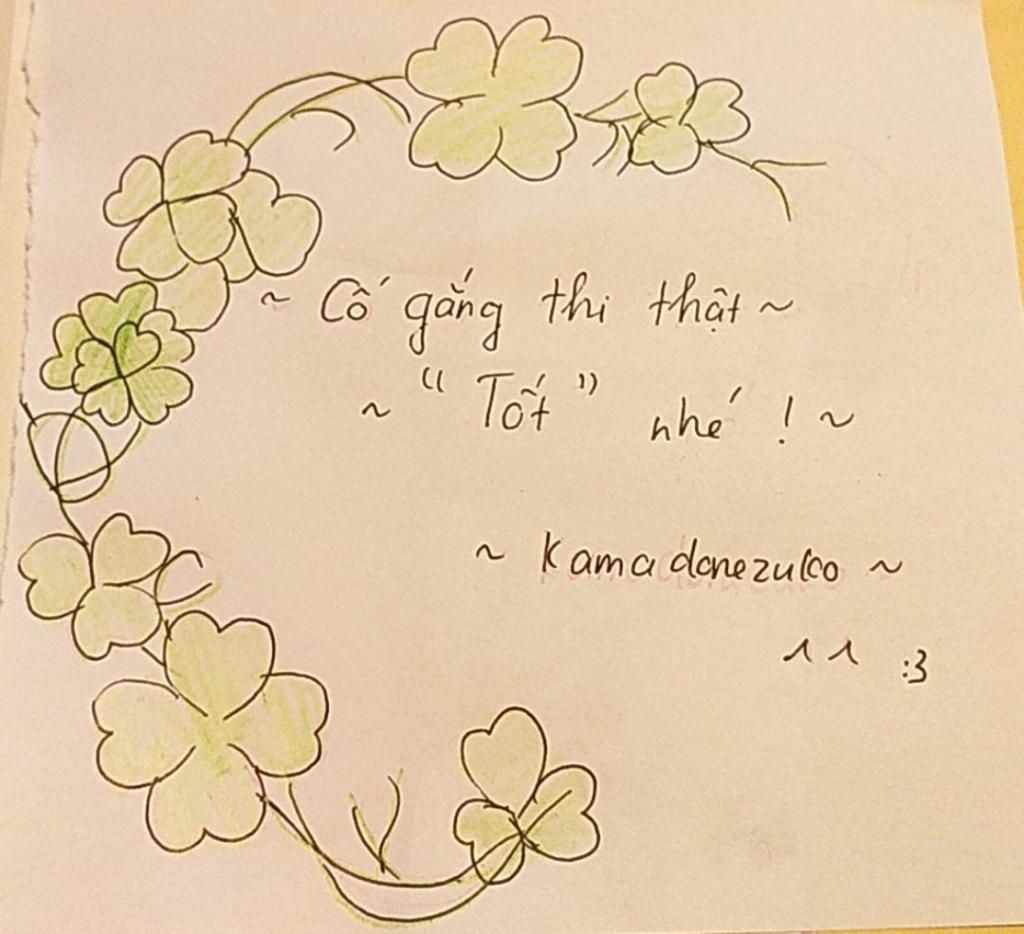 ~ Cố gắng thi thật ~
~ "Tốt" nhé ! ~
~ Kamadonezuko ~
^ ^ :3